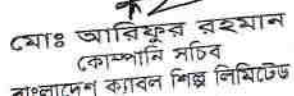 মোঃ আরিফুর রহমান
কোম্পানি সচিব
বাংলাদেশ ক্যাবল শিল্প লিমিটেড